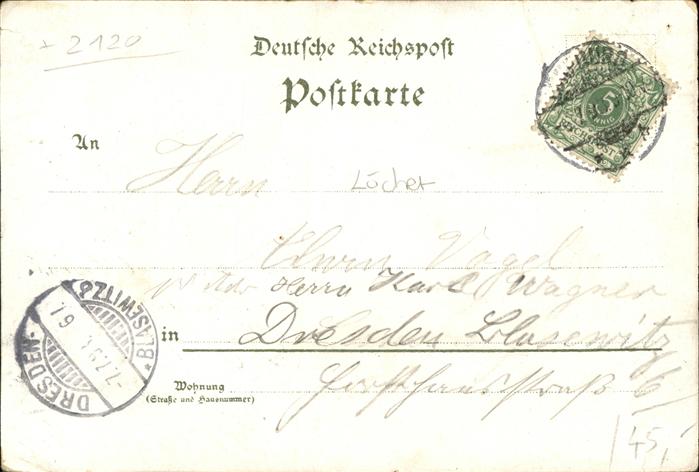 + 2120
Deutsche Reichspost
Postkarte
5
PFENNIG
REICHSPOST
An
Herrn
Löcher
Vogel
Herrn Karl Wagner
in Dresden Blasewitz
Wohnung
(Straße und Hausnummer)
6
45,
DRESDEN-BLASEWITZ